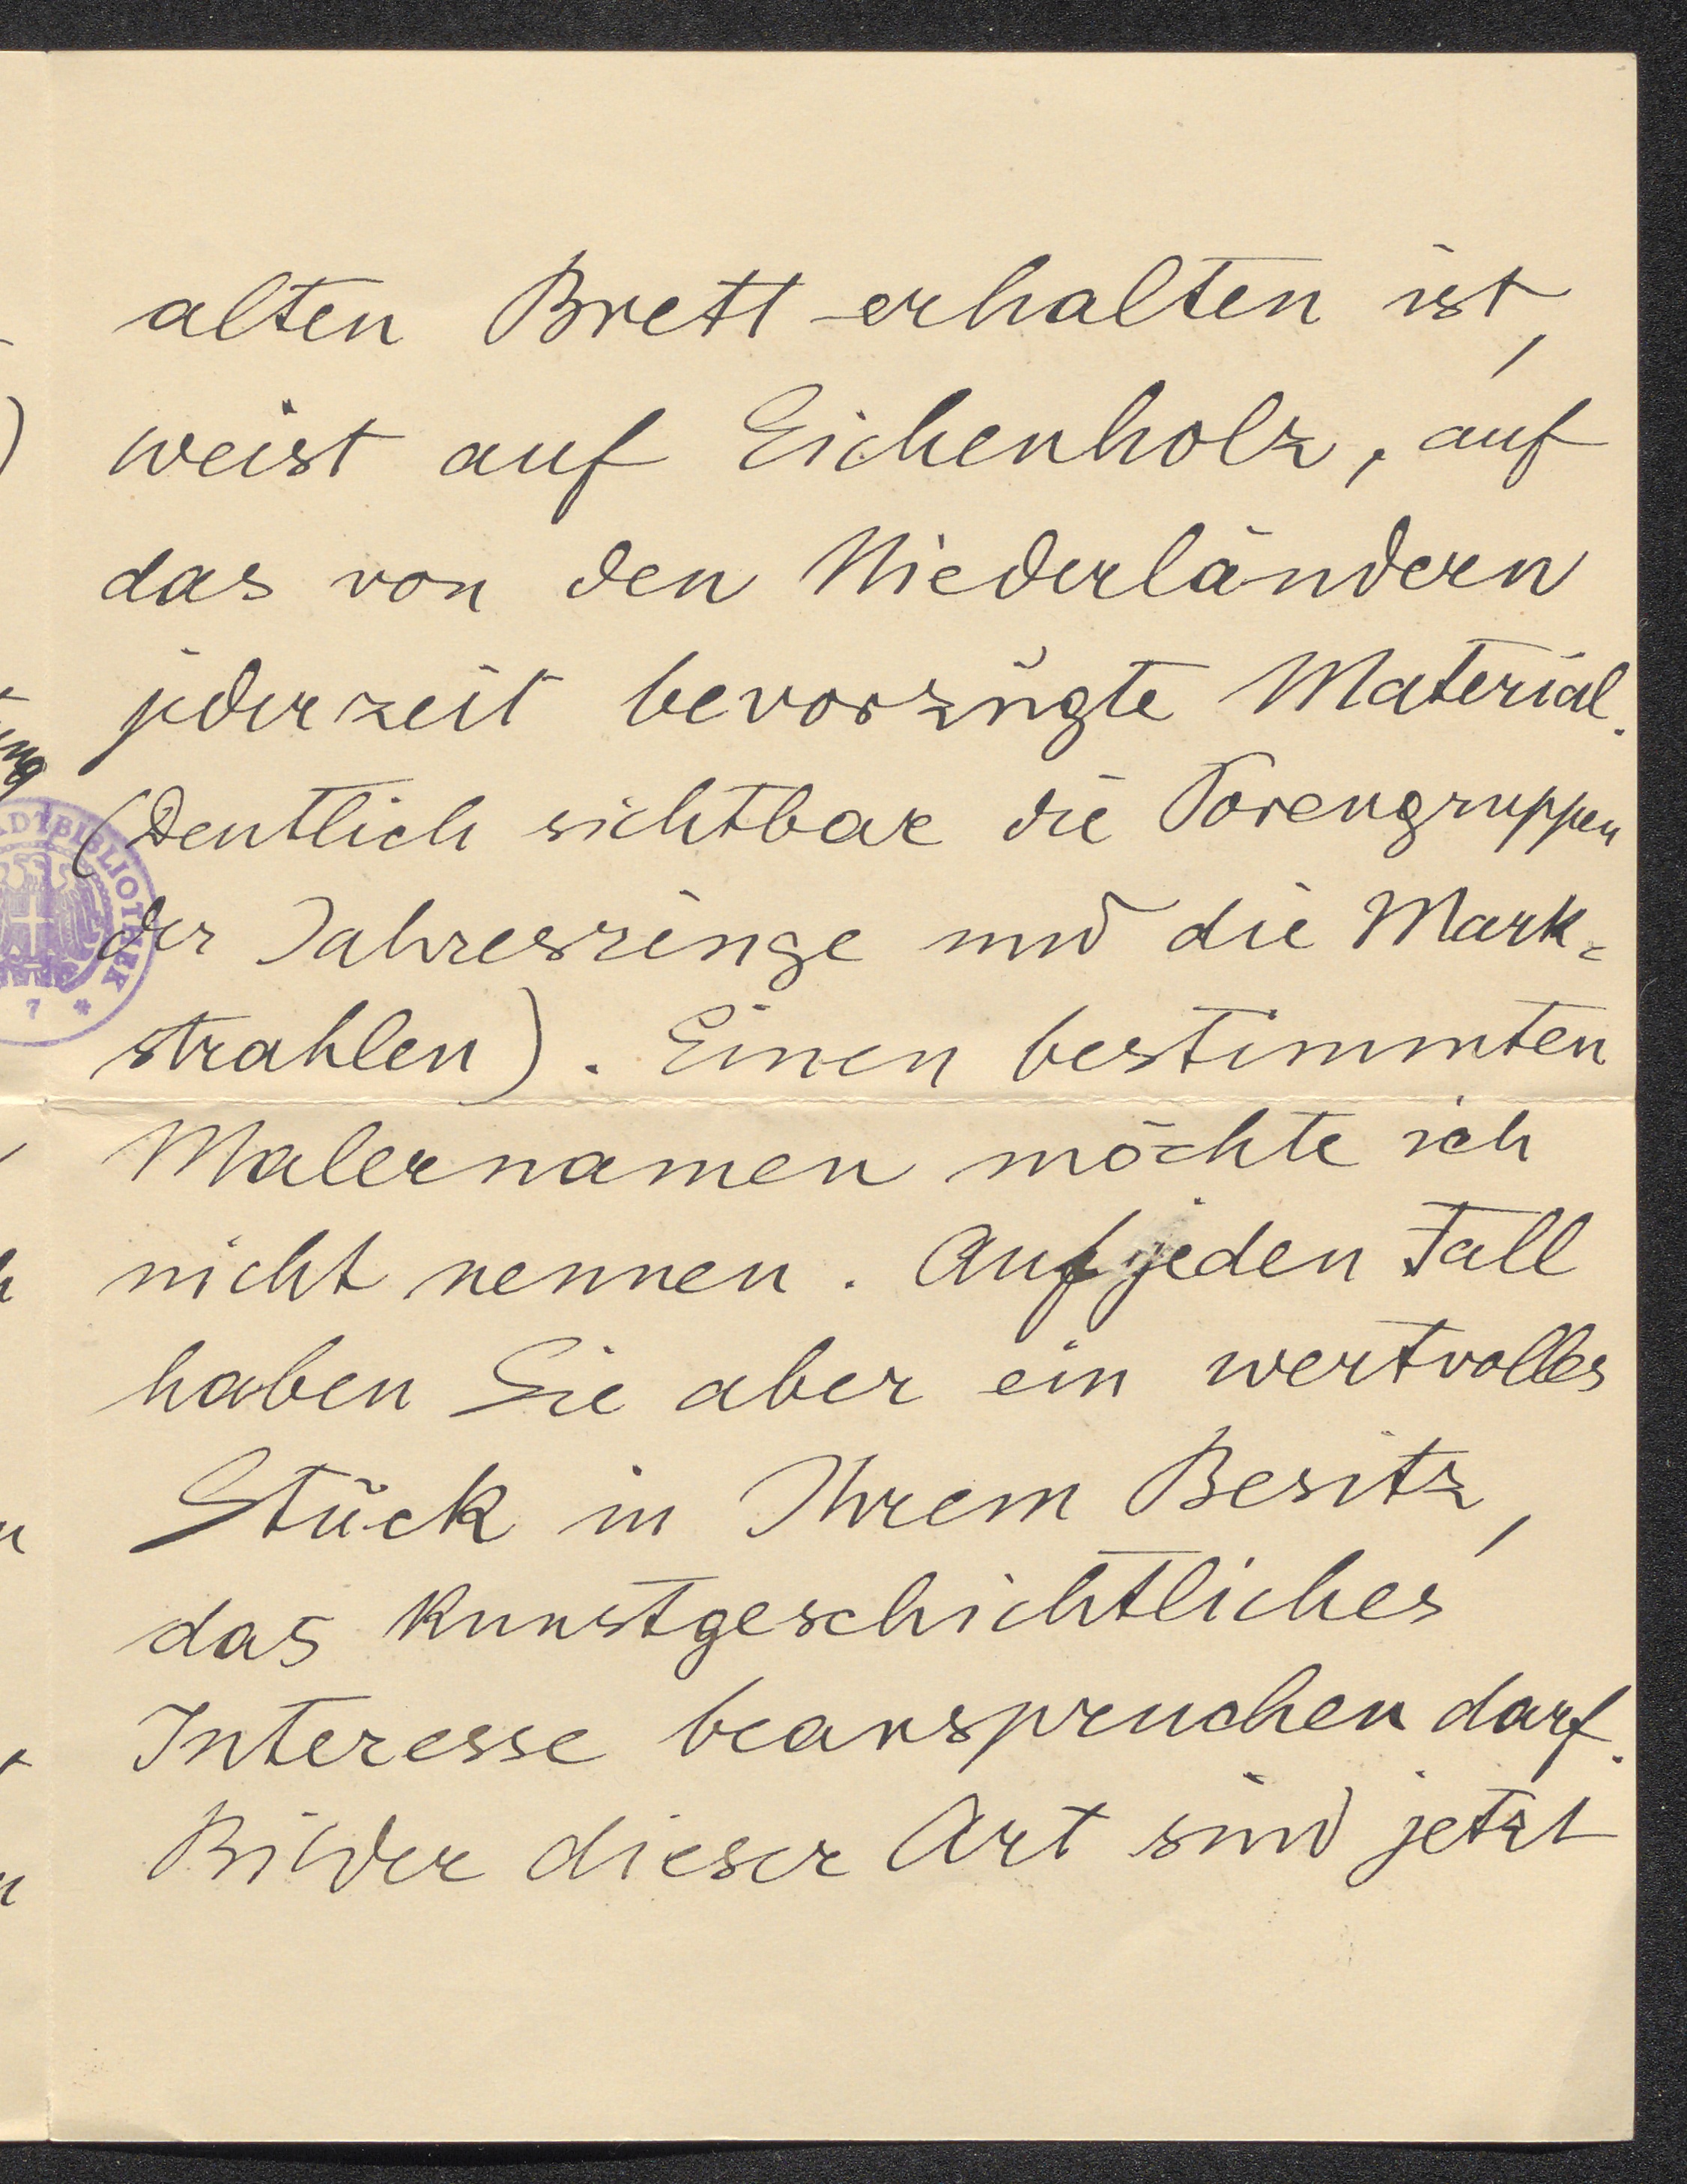 alten Brett erhalten ist,
weist auf Eichenholz, auf
das von den Niederländern
jederzeit bevorzugte Material.
(Deutlich sichtbar die Porengruppen
der Jahresringe und die Mark-
strahlen). Einen bestimmten
Malernamen möchte ich
nicht nennen. Auf jeden Fall
haben Sie aber ein wertvolles
Stück in Ihrem Besitz,
das kunstgeschichtliches
Interesse beanspruchen darf.
Bilder dieser Art sind jetzt
ADTBIBLIOTHEK
7 *